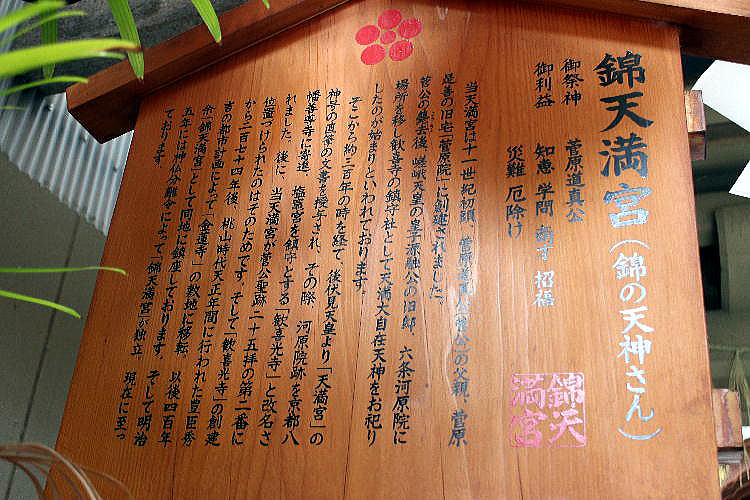 錦天満宮(錦の天神さん)
御祭神 菅原道真公
御利益 知恵 学問 商才 招福
災難 厄除け
当天満宮は十一世紀初頭、菅原道真公(菅公)の父親、菅原
是善の旧宅「菅原院」に創建されました。
菅公の鎮去後、嵯峨天皇の皇子源融公の旧邸、六条河原院に
場所を移し歓喜寺の鎮守社として天満大自在天神をお祀り
したのが始まりといわれております。
そこから約三百年の時を経て、後伏見天皇より「天満宮」の
神号の直筆の文書を授与され、その際 河原院跡を京都八
幡善導寺に寄進、塩竈宮を鎮守とする「歓喜光寺」と改名さ
れました。後に、当天満宮が菅公聖跡二十五拝の第二番に
位置づけられたのはそのためです。そして「歓喜光寺」の創建
から二百七十四年後、桃山時代天正年間に行われた豊臣秀
吉の都市計画によって「金蓮寺」の敷地に移転 以後四百年
余「錦天満宮」として同地に鎮座しております。そして明治
五年には神仏分離令によって「錦天満宮」が独立 現在に至っ
ております。
錦天
満宮